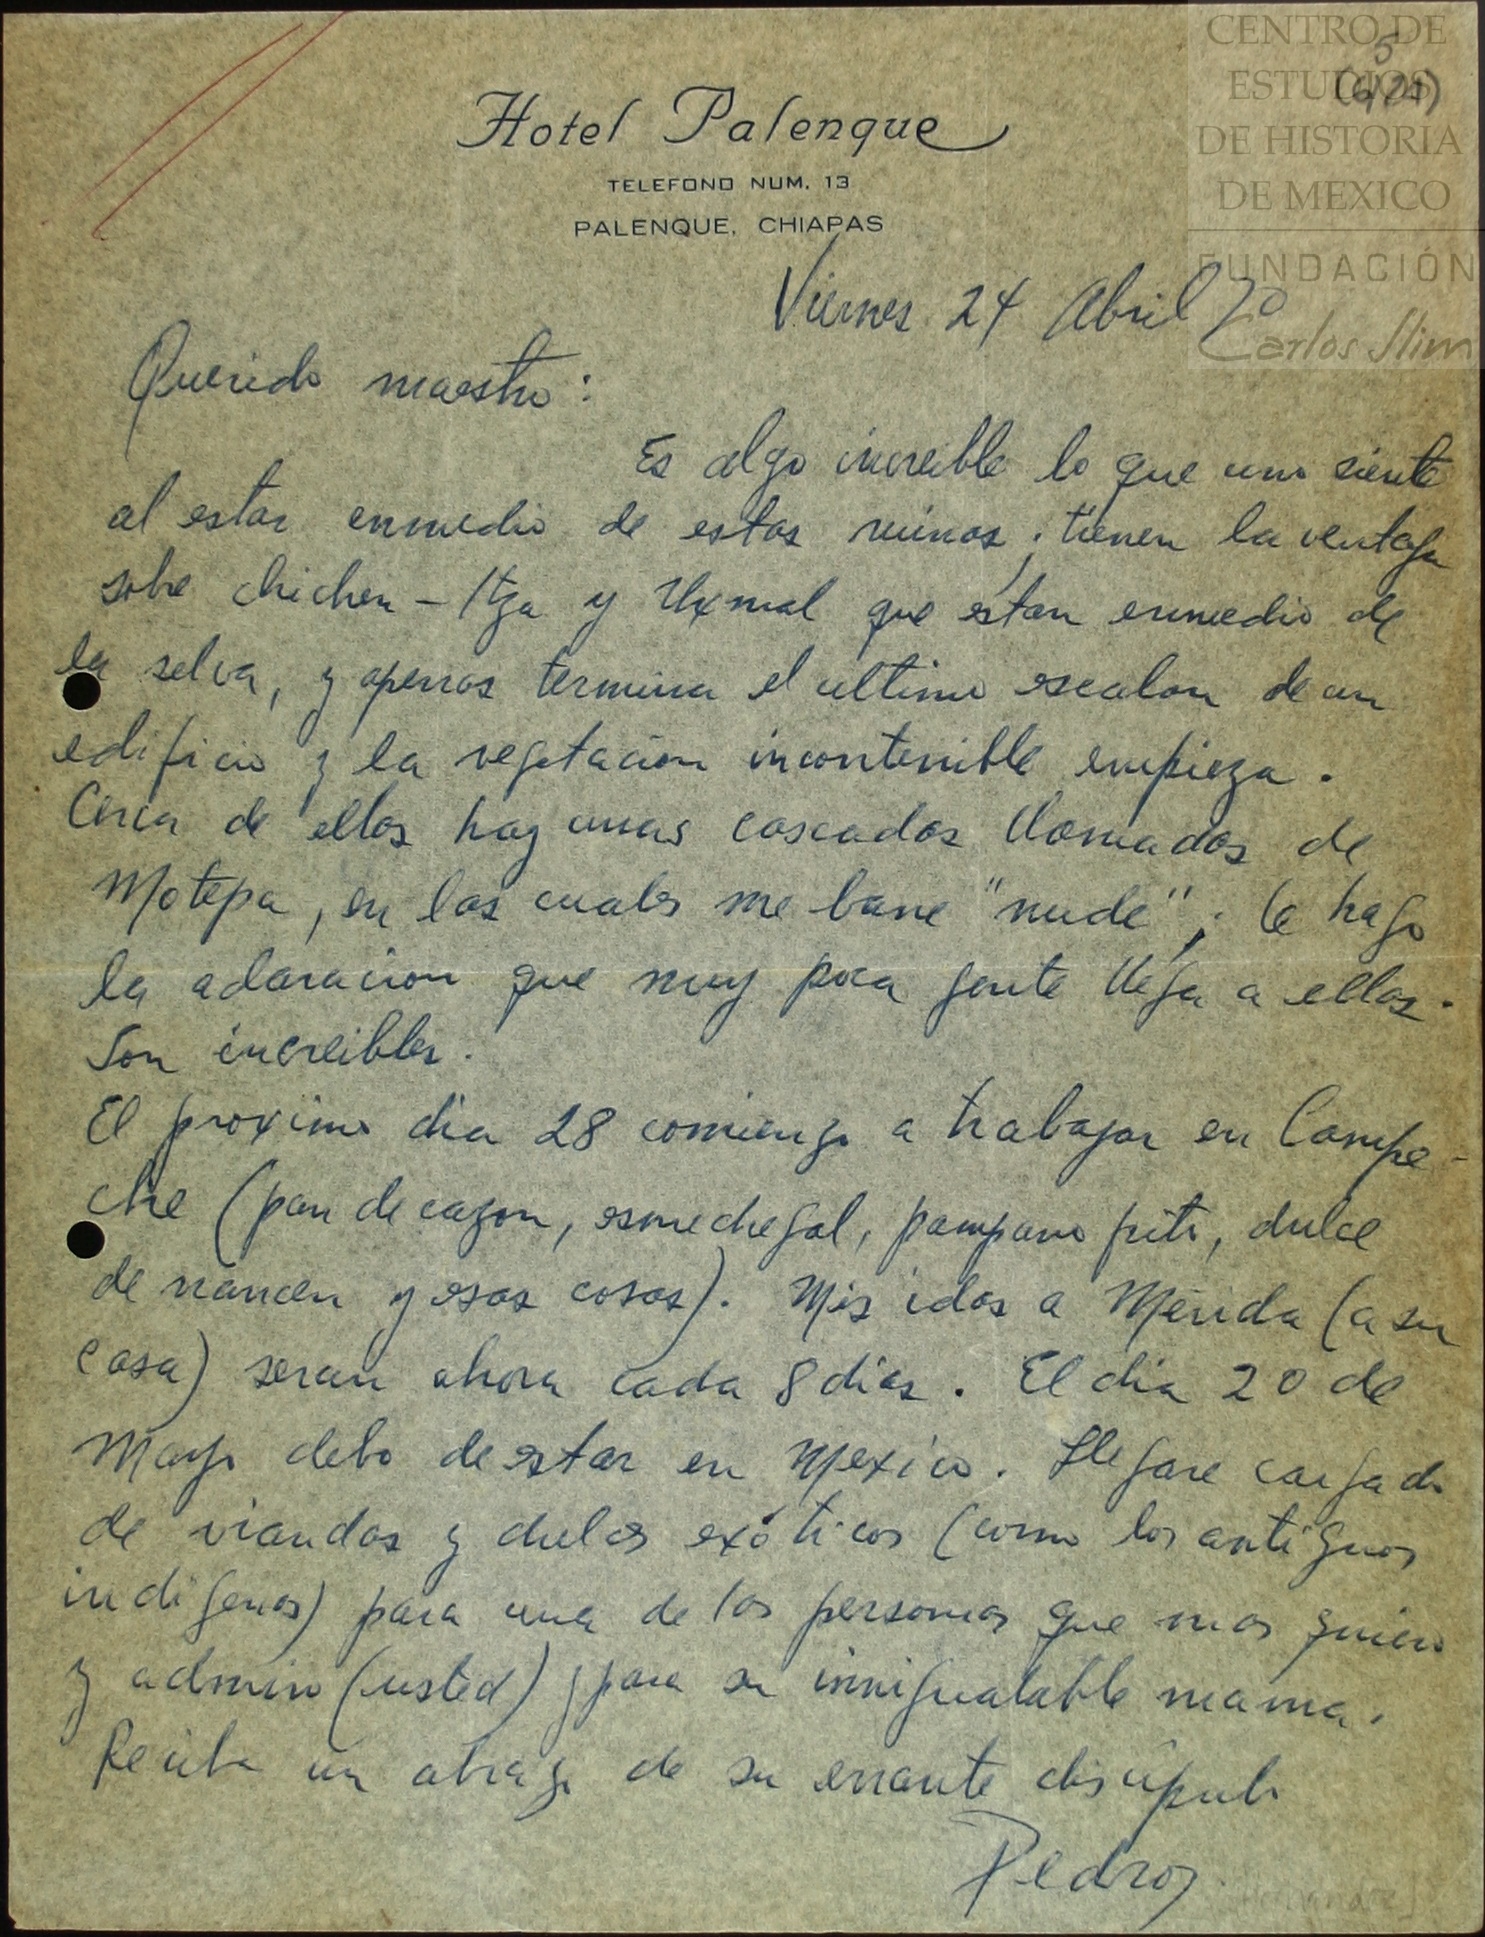 CENTRO DE
ESTUDIOS
DE HISTORIA
DE MEXICO
FUNDACIÓN
Carlos Slim
5
Hotel Palenque
TELEFONO NUM. 13
PALENQUE, CHIAPAS
Viernes 24 Abril 70
Querido maestro:
Es algo increible lo que uno siente
al estar enmedio de estas ruinas; tienen la ventaja
sobre chichen-Itza y Uxmal que estan enmedio de
la selva, y apenas termina el ultimo escalon de un
edificio y la vegetacion incontenible empieza.
Cerca de ellas hay unas cascadas llamadas de
Motepa, en las cuales me bane "nude"; le hago
la adaracion que muy poca gente llega a ellas.
Son increibles.
El proximo dia 28 comienzo a trabajar en Campe-
che (pan de cazon, esmedregal, pampano frito, dulce
de nancen y esas cosas). Mis idas a Mérida (a su
casa) seran ahora cada 8 dias. El dia 20 de
Mayo debo de estar en Mexico. Llegare cargado
de viandas y dulces exóticos (como los antiguos
indigenas) para una de las personas que mas quiero
y admiro (usted) y para su inmigualable mama.
Reciba un abrazo de su errante discipulo
Pedro